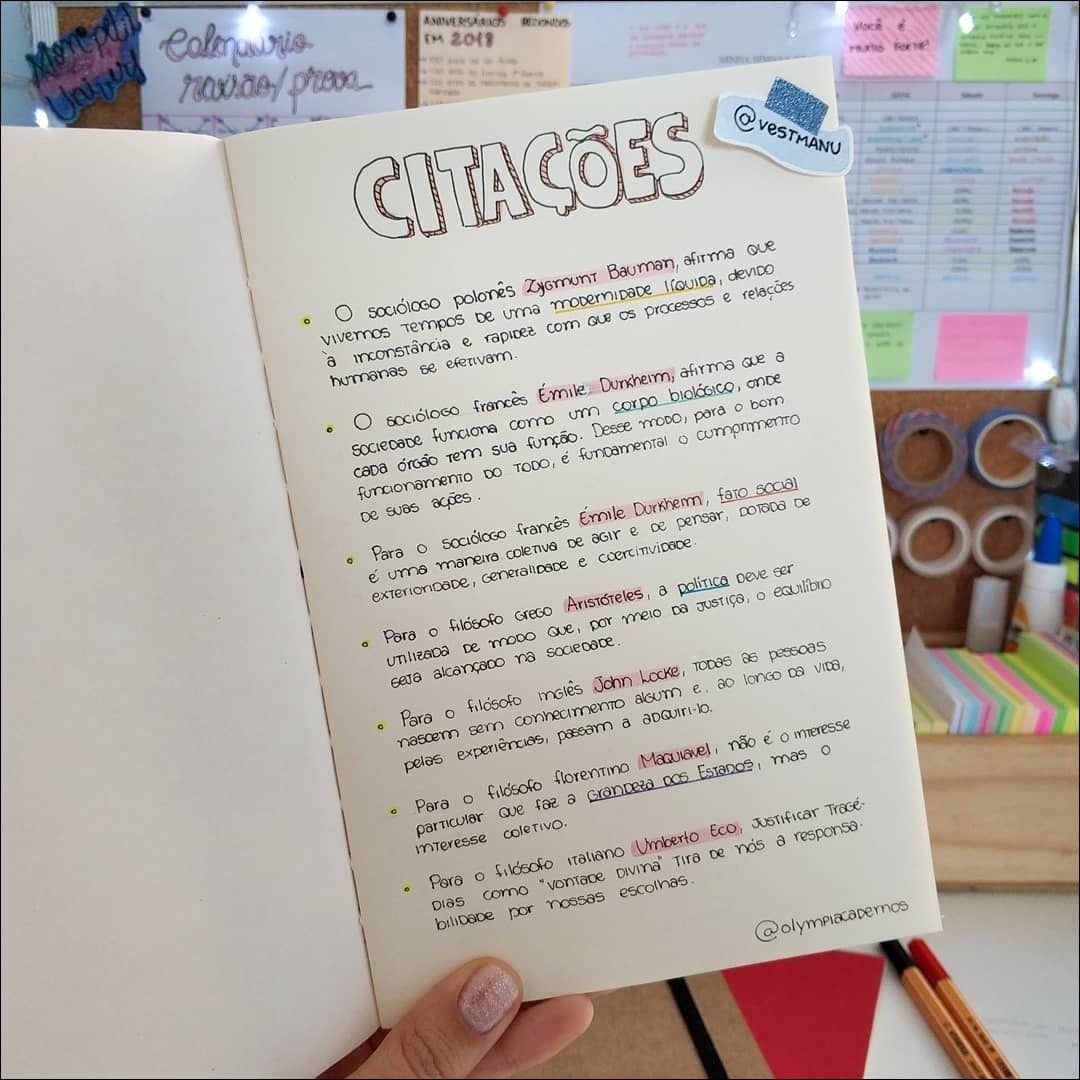 Calendário
revisão/prova
ANIVERSÁRIOS REDONDOS
EM 2018
VOCÊ É
MUITO FORTE!
@VESTMANU
CITAÇÕES
O sociólogo polonês Zygmunt Bauman, afirma que
vivemos tempos de uma modernidade líquida, devido
à inconstância e rapidez com que os processos e relações
humanas se efetivam.
O sociólogo francês Émile Durkheim, afirma que a
sociedade funciona como um corpo biológico, onde
cada órgão tem sua função. Desse modo, para o bom
funcionamento do todo, é fundamental o cumprimento
de suas ações.
Para o sociólogo francês Émile Durkheim, fato social
é uma maneira coletiva de agir e de pensar, dotada de
exterioridade, generalidade e coercitividade.
Para o filósofo grego Aristóteles, a política deve ser
utilizada de modo que, por meio da justiça, o equilíbrio
seja alcançado na sociedade.
Para o filósofo inglês John Locke, todas as pessoas
nascem sem conhecimento algum e, ao longo da vida,
pelas experiências, passam a adquiri-lo.
Para o filósofo florentino Maquiavel, não é o interesse
particular que faz a grandeza dos Estados, mas o
interesse coletivo.
Para o filósofo italiano Umberto Eco, justificar tragé-
dias como "vontade divina" tira de nós a responsa-
bilidade por nossas escolhas.
@olympiacadernos